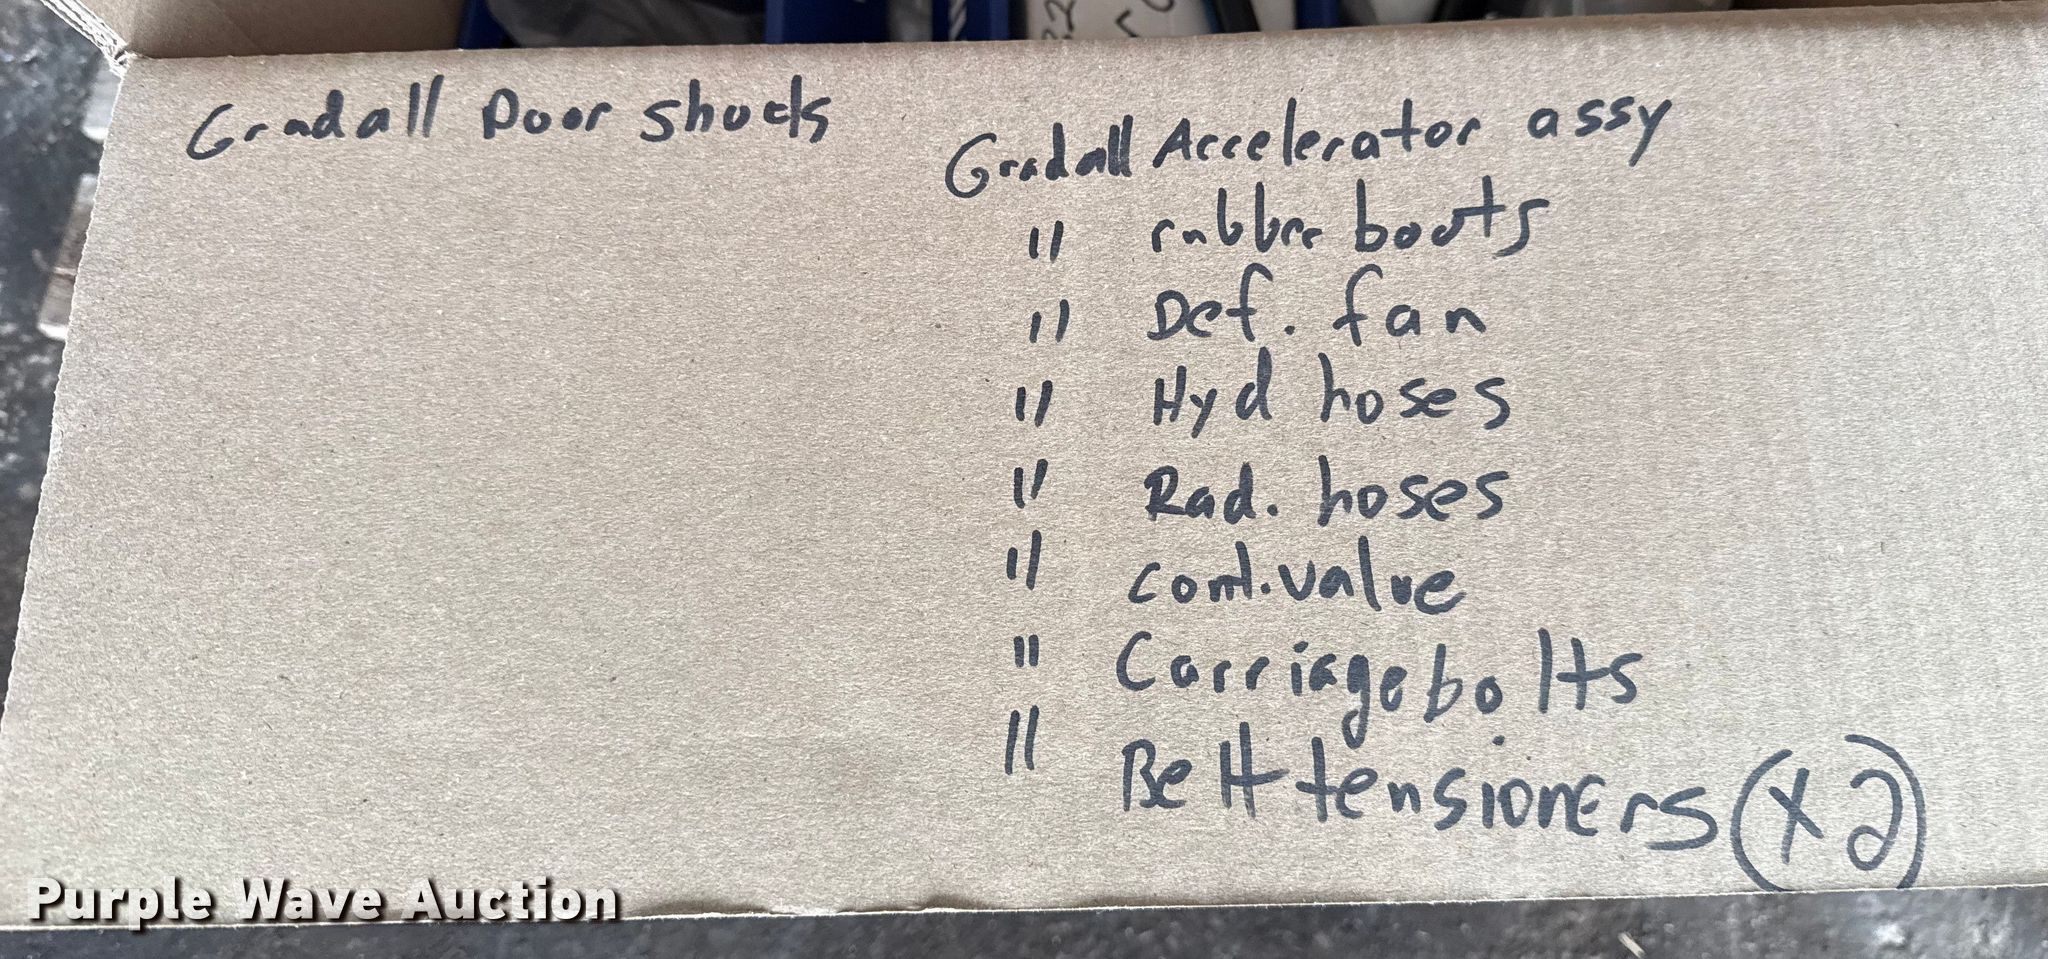 Gradall Door shocks
Gradall Accelerator assy
" rubber boots
" Def. fan
" Hyd hoses
" Rad. hoses
" cont. valve
" Carriage bolts
" Belt tensioners (x2)
Purple Wave Auction